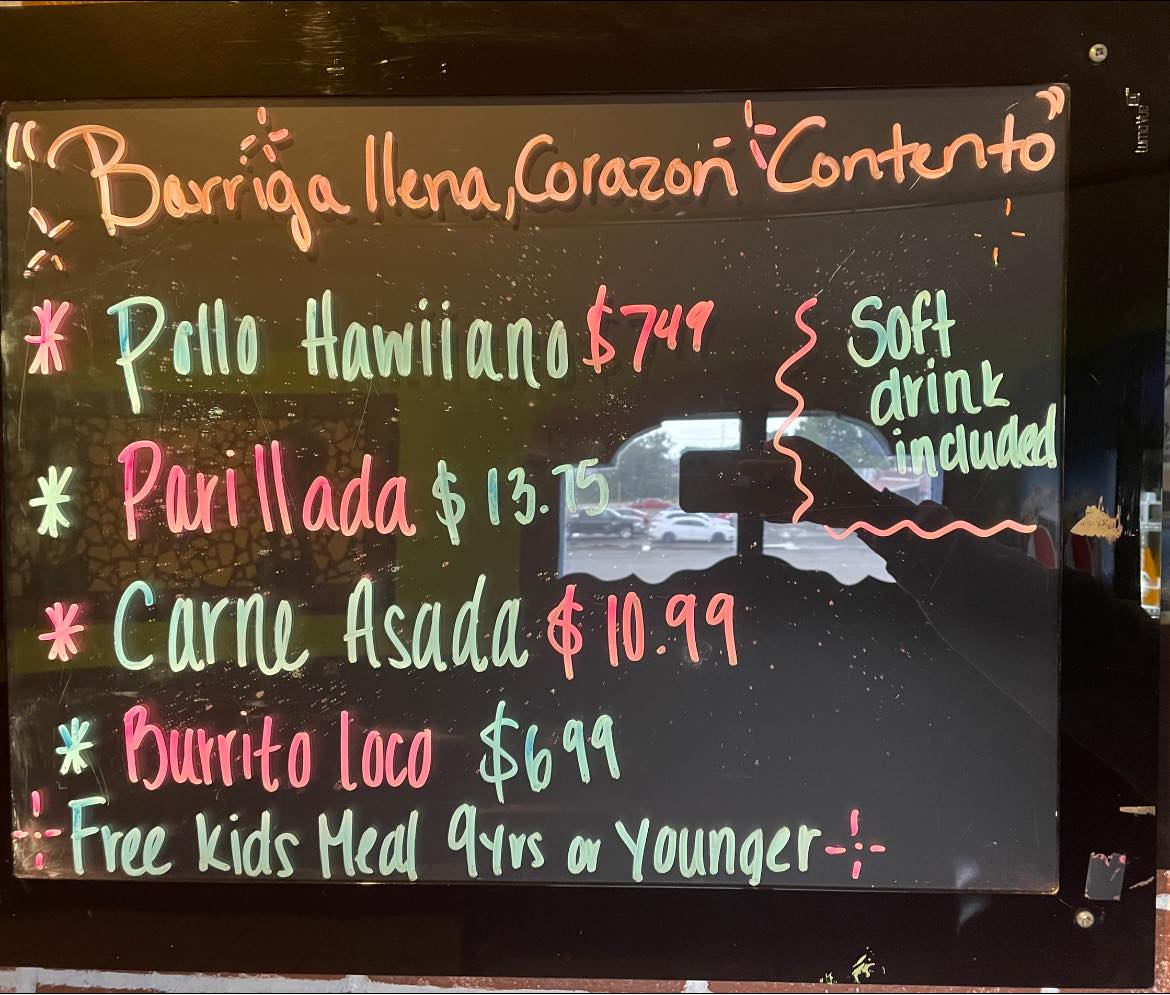 "Barriga llena, Corazon Contento"
* Pollo Hawiiano $749
Soft
drink
included
* Parillada $13.75
* Carne Asada $10.99
* Burrito loco $699
Free kids Meal 9yrs or Younger